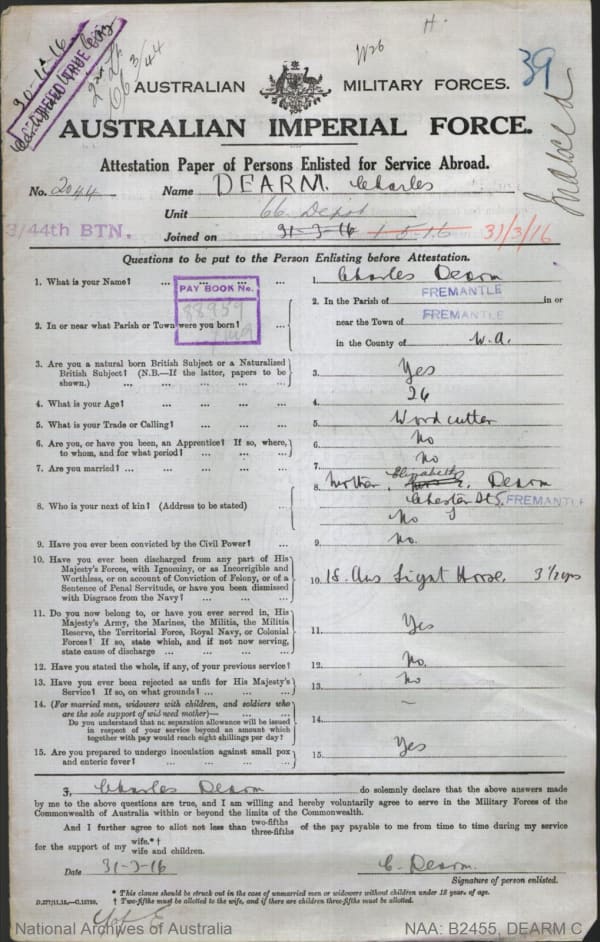 H.
30-11-16
CERTIFIED TRUE COPY
3/44
39
Indexed
AUSTRALIAN MILITARY FORCES.
AUSTRALIAN IMPERIAL FORCE.
Attestation Paper of Persons Enlisted for Service Abroad.
No. 2044 Name DEARM. Charles
Unit 66 Depot
3/44th BTN. Joined on 31-3-16 1.5.16 31/3/16
Questions to be put to the Person Enlisting before Attestation.
1. What is your Name? ... ... ... ... 1. Charles Dearm
PAY BOOK No.
88959
2. In or near what Parish or Town were you born? ...
2. In the Parish of FREMANTLE in or
near the Town of FREMANTLE
in the County of W.A.
3. Are you a natural born British Subject or a Naturalized British Subject? (N.B.—If the latter, papers to be shown.) ... ... ... ... ... 3. Yes
4. What is your Age? ... ... ... 4. 26
5. What is your Trade or Calling? ... ... ... 5. Woodcutter
6. Are you, or have you been, an Apprentice? If so, where, to whom, and for what period? ... ... ... 6. No
7. Are you married? ... ... ... ... ... 7. No
8. Who is your next of kin? (Address to be stated) ... 8. Mother, Elizabeth Dearm
Chester St S. FREMANTLE
No
9. Have you ever been convicted by the Civil Power? ... 9. No.
10. Have you ever been discharged from any part of His Majesty's Forces, with Ignominy, or as Incorrigible and Worthless, or on account of Conviction of Felony, or of a Sentence of Penal Servitude, or have you been dismissed with Disgrace from the Navy? ... ... ... 10. 18. Aus Light Horse. 3 1/2 yrs
11. Do you now belong to, or have you ever served in, His Majesty's Army, the Marines, the Militia, the Militia Reserve, the Territorial Force, Royal Navy, or Colonial Forces? If so, state which, and if not now serving, state cause of discharge ... ... ... ... 11. Yes
12. Have you stated the whole, if any, of your previous service? 12. No.
13. Have you ever been rejected as unfit for His Majesty's Service? If so, on what grounds? ... ... ... 13. No
14. (For married men, widowers with children, and soldiers who are the sole support of widowed mother)— ... ...
Do you understand that no separation allowance will be issued in respect of your service beyond an amount which together with pay would reach eight shillings per day? 14. —
15. Are you prepared to undergo inoculation against small pox and enteric fever? ... ... ... ... 15. Yes
I, Charles Dearm do solemnly declare that the above answers made
by me to the above questions are true, and I am willing and hereby voluntarily agree to serve in the Military Forces of the
Commonwealth of Australia within or beyond the limits of the Commonwealth.
And I further agree to allot not less than two-fifths three-fifths of the pay payable to me from time to time during my service
for the support of my wife.*† wife and children.
Date 31-3-16 C. Dearm.
Signature of person enlisted.
* This clause should be struck out in the case of unmarried men or widowers without children under 18 years of age.
† Two-fifths must be allotted to the wife, and if there are children three-fifths must be allotted.
D.277/11.15.—C.15790.
National Archives of Australia NAA: B2455, DEARM C